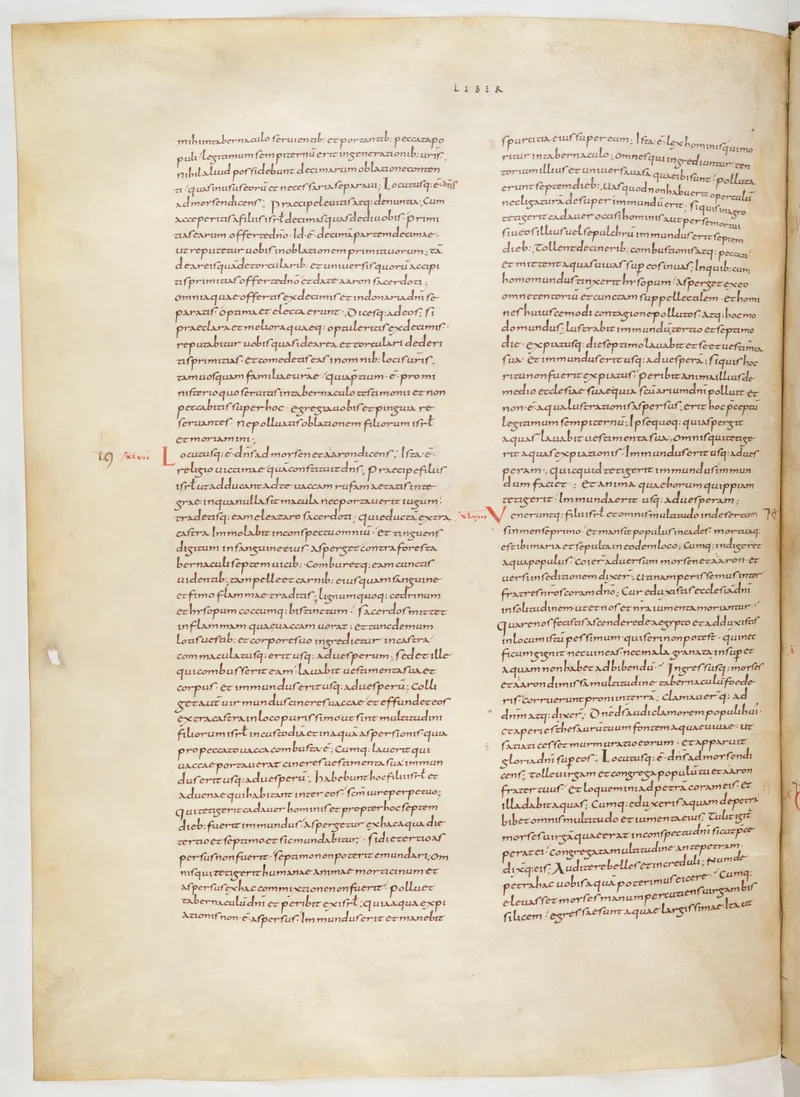 LIBER
mihi intabernaculo seruientib: et portantib: peccata po
puli; legitimum sempiternū erit ingenerationib: uris,
nihil aliud possidebunt decimarum oblatione conten
ti quas inusus eorū et necessaria separaui; Locutusq: ē dñs
ad mosen dicens; Praecipe leuitis atq: denuntia; Cum
acceperitis a filiis isrl decimas quas dedi uobis primi
tias earum offerte dño. Id ē decimā partem decimae.
ut reputetur uobis in oblationem primitiuorum; tā
de areis quā de torcularib: et uniuersis quorū accipi
tis primitias offerte dño et date aaron sacerdoti;
omnia quae offertis ex decimis et in donaria dñi se
paratis optima et electa erunt; Dicesq: ad eos; si
praeclara et meliora quaeq: optuleritis ex decimis
reputabitur uobis quasi de area et torculari dederi
tis primitias; et comedetis eas in omnib: locis uris,
tam uos quam familiae urae quia praetium ē pro mi
nisterio quo seruitis in tabernaculo testimonii et non
peccabitis super hoc egregia uobis et pinguia re
seruantes ne polluatis oblationem filiorum isrl
et moriamini;
19 xlvii Locutusq: ē dñs ad mosen et aaron dicens; Ista ē
religio uictimae quā constituit dñs; Praecipe filiis
isrl ut adducant ad te uaccam rufam aetatis inte
grae in qua nulla sit macula nec portauerit iugum;
tradetisq: eam eleazaro sacerdoti; qui eductā extra
castra Immolabit in conspectu omniū et tinguens
digitum in sanguine eius asperget contra fores ta
bernaculi septem uicib: Comburetq: eam cunctis
uidentib: tam pelle et carnib: eius quam sanguine
et fimo flammae traditis; lignum quoq: cedrinum
et hysopum coccumq: bis tinctum sacerdos mittet
in flammam quae uaccam uorat; et tunc demum
lotis uestib: et corpore suo ingredietur in castra
commaculatusq: erit usq: ad uesperum; sed et ille
qui combusserit eam lauabit uestimenta sua et
corpus et immundus erit usq: ad uesperū; Colli
get aūt uir mundus cineres uaccae et effundet eos
extra castra in loco purissimo ut sint multitudini
filiorum isrl in custodia et in aqua aspersionis quia
pro peccato uacca combusta ē; Cumq: lauerit qui
uaccae portauerat cineres uestimenta sua immun
dus erit usq: ad uesperū; habebunt hoc filii isrl et
aduenae qui habitant inter eos scm iure perpetuo;
qui tetigerit cadauer hominis et propter hoc septem
dieb: fuerit immundus aspergetur ex hac aqua die
tertio et septimo et sic mundabitur; si die tertio as
persus non fuerit septimo non poterit emundari; Om
nis qui tetigerit humanae animae morticinum et
aspersus ex hac commixtione non fuerit polluet
tabernaculū dñi et peribit ex isrl; quia aqua expi
ationis non ē aspersus; Immundus erit et manebit
spurcitia eius super eum; Ista ē lex hominis qui mo
ritur in tabernaculo; omnes qui ingrediuntur ten
torium illius et uniuersa uasa quae ibi sunt polluta
erunt septem dieb; Uas quod non habuerit operculū
nec ligaturā desuper immundū erit; si quis in agro
tetigerit cadauer occisi hominis aut per se mortui
siue os illius uel sepulchrū immundus erit septem
dieb; tollent de cinerib: combustionis atq: peccati
et mittent aquas uiuas sup eos in uas; In quib: cum
homo mundus tinxerit hysopum asperget ex eo
omne tentoriū et cunctam suppellectilem et homi
nes huiuscemodi contagione pollutos. atq: hoc mo
do mundus lustrabit immundū tertio et septimo
die expiatusq: die septimo lauabit et se et uestimenta
sua et immundus erit usq: ad uesperā; si quis hoc
ritu non fuerit expiatus peribit anima illius de
medio ecclesiae suae quia scuarium dñi polluit et
non ē aqua lustrationis aspersus; erit hoc pceptū
legitimum sempiternū; Ipse quoq: qui aspergit
aquas lauabit uestimenta sua; omnis qui tetige
rit aquas expiationis Immundus erit usq: ad ues
peram; quicquid tetigerit immundus immun
dum faciet; et anima quae horum quippiam
tetigerit Immunda erit usq: ad uesperam;
xlviii Veneruntq: filii isrl et omnis multitudo in desertum
sin mense primo et mansit populus in cades mortuaq:
est ibi maria et sepulta in eodem loco; Cumq: indigeret
aqua populus Coierunt aduersum mosen et aaron et
uersi in seditionem dixer; Utinam perissemus inter
fratres nros coram dño; Cur eduxistis ecclesiā dñi
in solitudinem ut et nos et nra iumenta moriantur
Quare nos fecistis ascendere de aegypto et adduxistis
in locum istū pessimum qui seri non potest qui nec
ficum gignit nec uineas nec mala granata insup et
aquam non habet ad bibendū; Ingressusq: moses
et aaron dimissa multitudine tabernaculū foede
ris corruerunt proni in terrā; Clamauerq: ad
dnm atq: dixer; Dne ds audi clamorem populi huius
et aperi eis thesaurū tuum fontem aquae uiuae ut
satiati cesset murmuratio eorum et apparuit
gloria dni sup eos; Locutusq: ē dns ad mosen di
cens; tolle uirgam et congrega populū tu et aaron
frater tuus et loquemini ad petrā coram eis et
illa dabit aquas; Cumq: eduxeris aquam de petra
bibet omnis multitudo et iumenta eius; Tulit igit
moses uirgā quae erat in conspectu dni sicut pce
perat ei congregata multitudine ante petram.
dixq: eis; Audite rebelles et increduli; Num de
petra hac uobis aquā poterimus eicere Cumq:
eleuasset moses manum percutiens uirga bis
silicem egressae sunt aquae largissimae ita ut